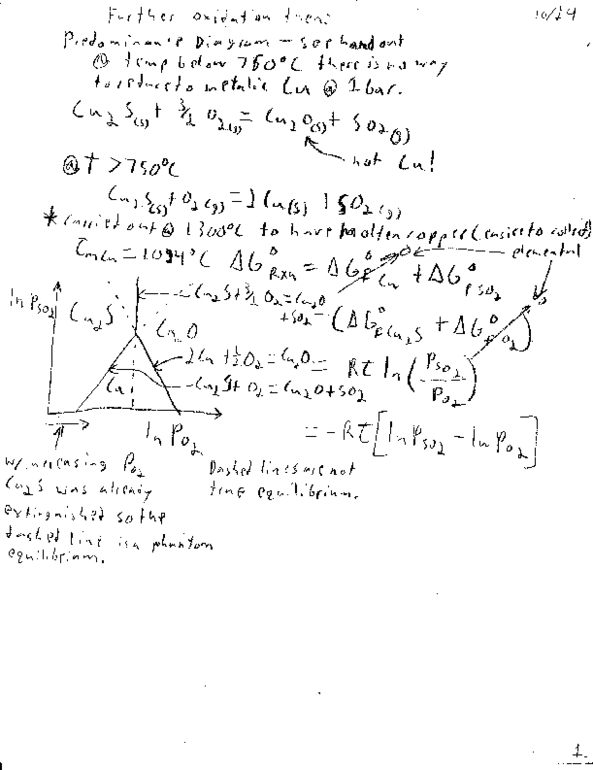 Further oxidation then: 10/24
Predominance Diagram - see handout
@ temp below 750°C there is no way
to reduce to metalic Cu @ 1 bar.
Cu2S(s) + 3/2 O2(g) = Cu2O(s) + SO2(g)
not Cu!
@ T > 750°C
Cu2S(s) + O2(g) = 2Cu(s) SO2(g)
* Carried out @ 1300°C to have molten copper (easier to collect)
TmCu = 1084°C ΔG°Rxn = ΔG°f Cu + ΔG°f SO2
elemental
ln PSO2
Cu2S
Cu2S + 3/2 O2 = Cu2O
+ SO2
- (ΔG°f Cu2S + ΔG°f O2)
Cu2O
2Cu + 1/2 O2 = Cu2O
= RT ln (PSO2 / PO2)
Cu
Cu2S + O2 = Cu2O + SO2
ln PO2
= -RT [ln PSO2 - ln PO2]
w/ increasing PO2
Cu2S was already
extinguished so the
dashed line is a phantom
equilibrium.
Dashed lines are not
true equilibrium.
1